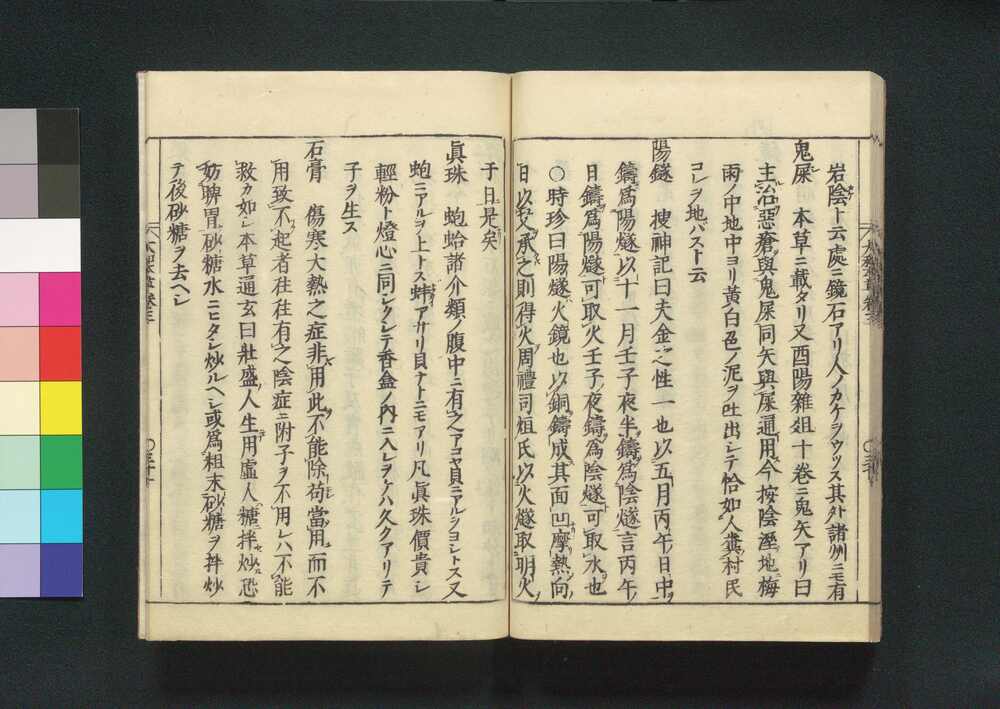 岩陰ト云處ニ鏡石アリ人ノカケヲウツス其外諸州ニモ有
鬼屎 本草ニ載タリ又酉陽雜俎十卷ニ鬼矢アリ曰
主治惡瘡與鬼屎同矢與屎通用今按陰溼地梅
雨ノ中地中ヨリ黃白色ノ泥ヲ吐出シテ恰如人糞村民
コレヲ地バストト云
陽燧 搜神記曰夫金之性一也以五月丙午日中
鑄爲陽燧以十一月壬子夜半鑄爲陰燧言丙午
日鑄爲陽燧可取火壬子夜鑄爲陰燧可取水也
○時珍曰陽燧火鏡也以銅鑄成其面凹摩熱向
日以艾承之則得火周禮司烜氏以火燧取明火
于日是矣
眞珠 蚫蛤諸介類ノ腹中ニ有之アコヤ貝ニアルヲヨシトス又
蚫ニアルヲ上トス蜻アサリ貝ナトニモアリ凡眞珠價貴シ
輕粉ト燈心ニ同シクシテ香盒ノ內ニ入レヲケハ久クアリテ
子ヲ生ス
石膏 傷寒大熱之症非用此不能除苟當用而不
用致不起者往往有之陰症ニ附子ヲ不用レハ不能
救カ如シ本草通玄曰壯盛人生用虛人糖拌炒恐
妨脾胃砂糖水ニヒタシ炒ルヘシ或爲粗末砂糖ヲ拌炒
テ後砂糖ヲ去ヘシ